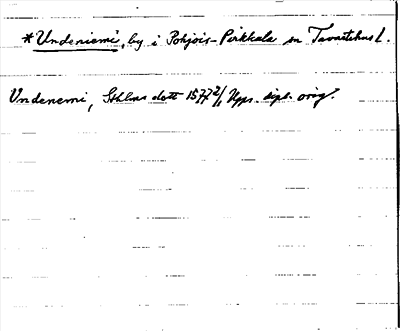 *Undeniemi, by i Pohjois-Pirkkala sn Tavastehus l.
Undenemi, Sthlms slott 1577 2/1 Upps. dipl. orig.